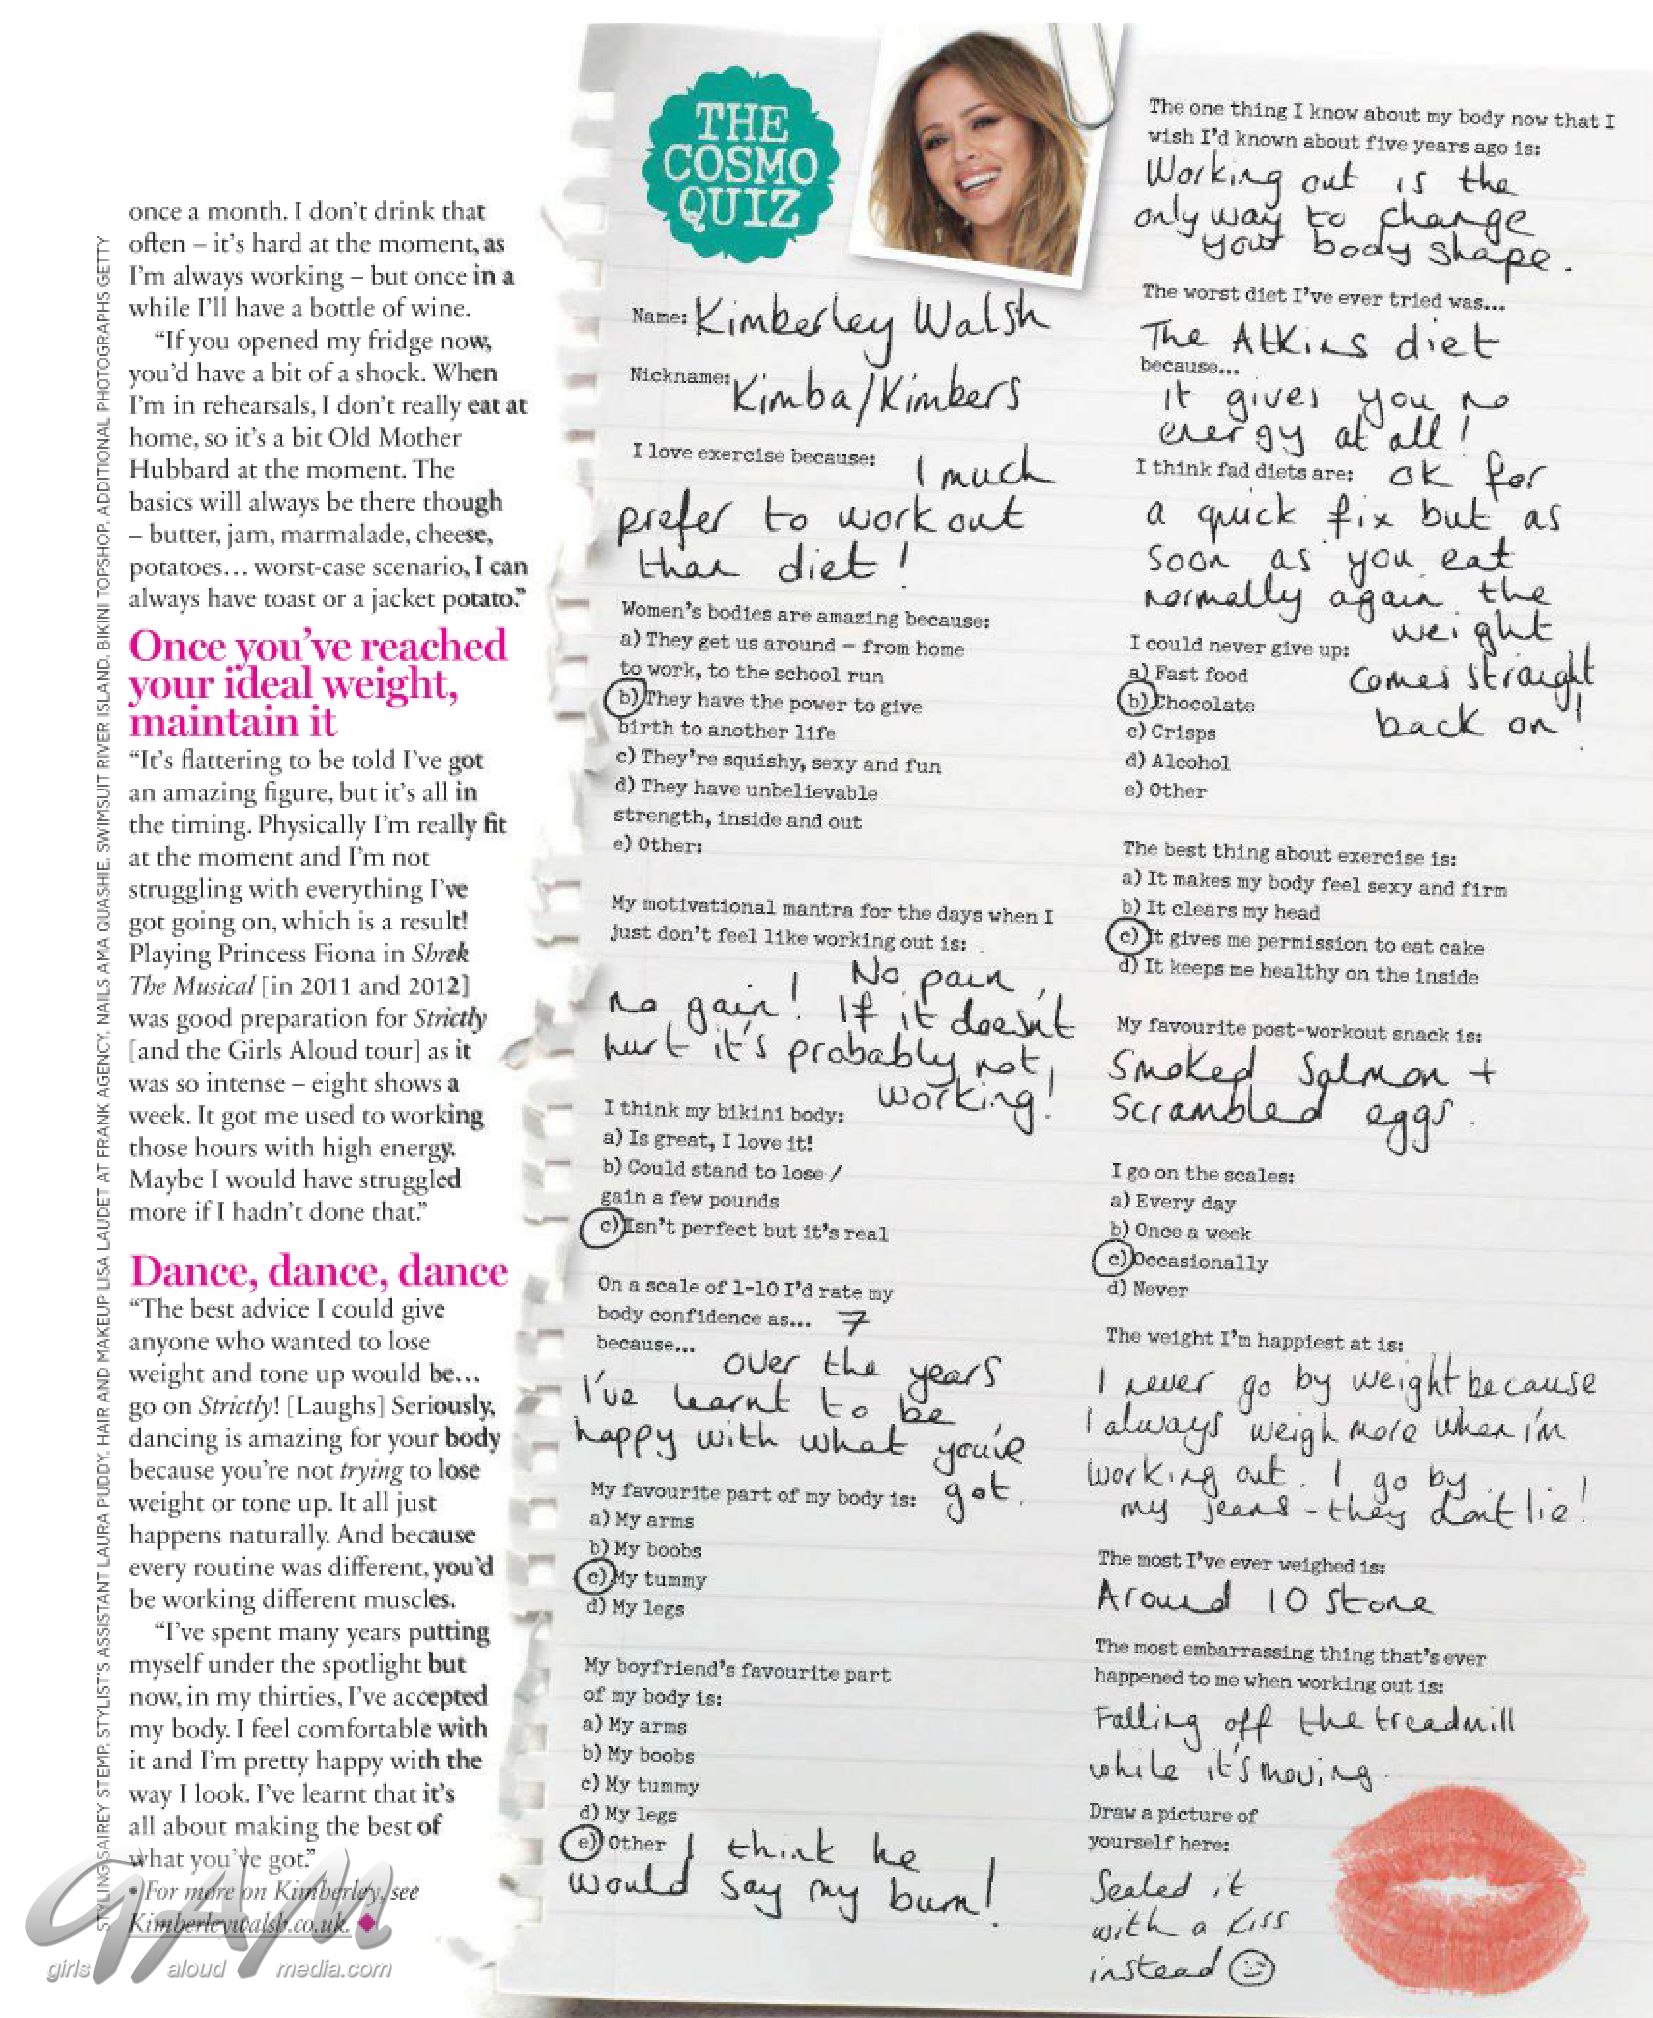 once a month. I don't drink that
often – it's hard at the moment, as
I'm always working – but once in a
while I'll have a bottle of wine.
"If you opened my fridge now,
you'd have a bit of a shock. When
I'm in rehearsals, I don't really eat at
home, so it's a bit Old Mother
Hubbard at the moment. The
basics will always be there though
– butter, jam, marmalade, cheese,
potatoes... worst-case scenario, I can
always have toast or a jacket potato."
Once you've reached
your ideal weight,
maintain it
"It's flattering to be told I've got
an amazing figure, but it's all in
the timing. Physically I'm really fit
at the moment and I'm not
struggling with everything I've
got going on, which is a result!
Playing Princess Fiona in Shrek
The Musical [in 2011 and 2012]
was good preparation for Strictly
[and the Girls Aloud tour] as it
was so intense – eight shows a
week. It got me used to working
those hours with high energy.
Maybe I would have struggled
more if I hadn't done that."
Dance, dance, dance
"The best advice I could give
anyone who wanted to lose
weight and tone up would be...
go on Strictly! [Laughs] Seriously,
dancing is amazing for your body
because you're not trying to lose
weight or tone up. It all just
happens naturally. And because
every routine was different, you'd
be working different muscles.
"I've spent many years putting
myself under the spotlight but
now, in my thirties, I've accepted
my body. I feel comfortable with
it and I'm pretty happy with the
way I look. I've learnt that it's
all about making the best of
what you've got."
• For more on Kimberley, see
Kimberleywalsh.co.uk.
STYLING SAIREY STEMP. STYLIST'S ASSISTANT LAURA PUDDY. HAIR AND MAKEUP LISA LAUDET AT FRANK AGENCY. NAILS AMA QUASHIE. SWIMSUIT RIVER ISLAND. BIKINI TOPSHOP. ADDITIONAL PHOTOGRAPHS GETTY
GAM
girls aloud media.com
THE
COSMO
QUIZ
Name: Kimberley Walsh
Nickname: Kimba/Kimbers
I love exercise because: I much
prefer to work out
than diet!
Women's bodies are amazing because:
a) They get us around – from home
to work, to the school run
b) They have the power to give
birth to another life
c) They're squishy, sexy and fun
d) They have unbelievable
strength, inside and out
e) Other:
My motivational mantra for the days when I
just don't feel like working out is:
No pain,
no gain! If it doesn't
hurt it's probably not
working!
I think my bikini body:
a) Is great, I love it!
b) Could stand to lose /
gain a few pounds
c) Isn't perfect but it's real
On a scale of 1-10 I'd rate my
body confidence as... 7
because... over the years
I've learnt to be
happy with what you've
got.
My favourite part of my body is:
a) My arms
b) My boobs
c) My tummy
d) My legs
My boyfriend's favourite part
of my body is:
a) My arms
b) My boobs
c) My tummy
d) My legs
e) Other I think he
would say my bum!
The one thing I know about my body now that I
wish I'd known about five years ago is:
Working out is the
only way to change
your body shape.
The worst diet I've ever tried was...
The Atkins diet
because...
it gives you no
energy at all!
I think fad diets are: ok for
a quick fix but as
soon as you eat
normally again the
weight
comes straight
back on!
I could never give up:
a) Fast food
b) Chocolate
c) Crisps
d) Alcohol
e) Other
The best thing about exercise is:
a) It makes my body feel sexy and firm
b) It clears my head
c) It gives me permission to eat cake
d) It keeps me healthy on the inside
My favourite post-workout snack is:
Smoked Salmon +
Scrambled eggs.
I go on the scales:
a) Every day
b) Once a week
c) Occasionally
d) Never
The weight I'm happiest at is:
I never go by weight because
I always weigh more when i'm
working out. I go by
my jeans - they don't lie!
The most I've ever weighed is:
Around 10 stone
The most embarrassing thing that's ever
happened to me when working out is:
Falling off the treadmill
while it's moving.
Draw a picture of
yourself here:
Sealed it
with a kiss
instead